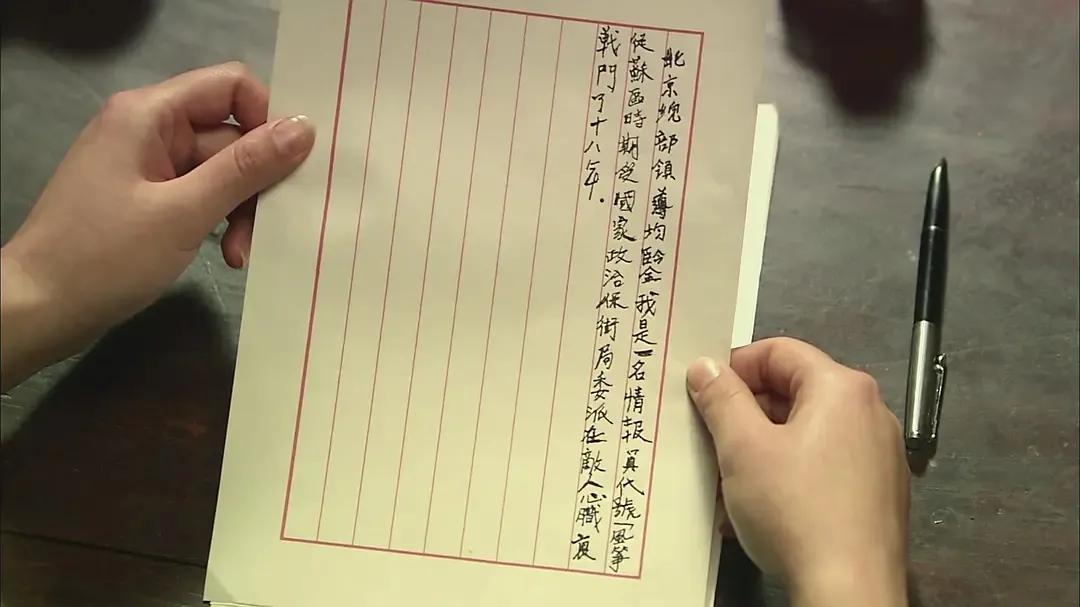 北京總部領導均鑒我是一名情報員代號「風箏
從蘇區時期受國家政治保衛局委派在敵人心臟裏
戰鬥了十八年.